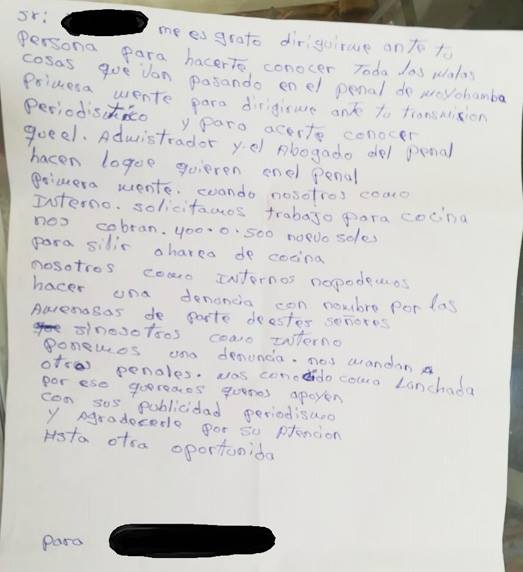 sr: me es grato diriguirme ante tu
persona para hacerte conocer Toda las malas
cosas que van pasando en el penal de moyobamba
primera mente para dirigirme ante tu transmision
periodistico y para acerte conocer
que el. Admistrador y el Abogado del penal
hacen loque quieren en el penal
primera mente. cuando nosotros como
INterno. solicitamos trabajo para cocina
nos cobran. 400. o. 500 nuevo soles
para silir aharea de cocina
nosotros como INternos nopodemos
hacer una denuncia con nombre por las
Amenasas de parte de estes señores
sinosotros como INterno
ponemos una denuncia. nos mandan A
otros penales. mas conocido como Lanchada
por eso queremos quenos apoyen
con sus publicidad periodismo
y Agradecerle por su Atencion
Hsta otra oportunida
para